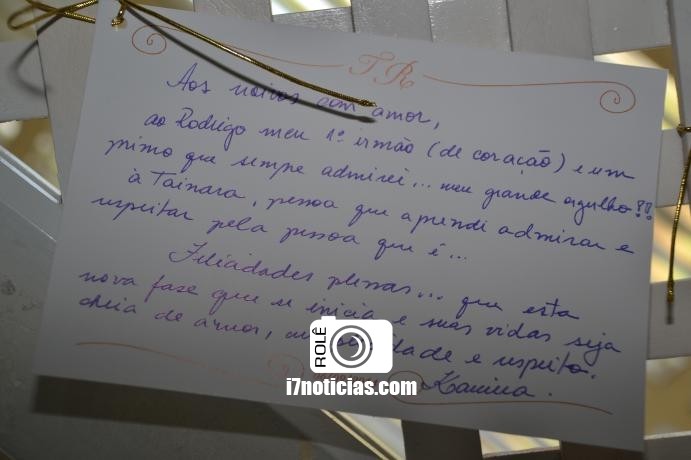 TR
Aos noivos com amor,
ao Rodrigo meu 1º irmão (de coração) e um
primo que sempre admirei... meu grande orgulho!!
à Tainara, pessoa que aprendi admirar e
respeitar pela pessoa que é...
Felicidades plenas... que esta
nova fase que se inicia e suas vidas seja
cheia de amor, dade e respeito.
ROLÊ
i7noticias.com